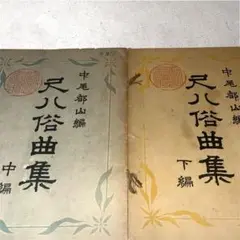 中尾都山編
尺八俗曲集
中編
中尾都山編
尺八俗曲集
下編